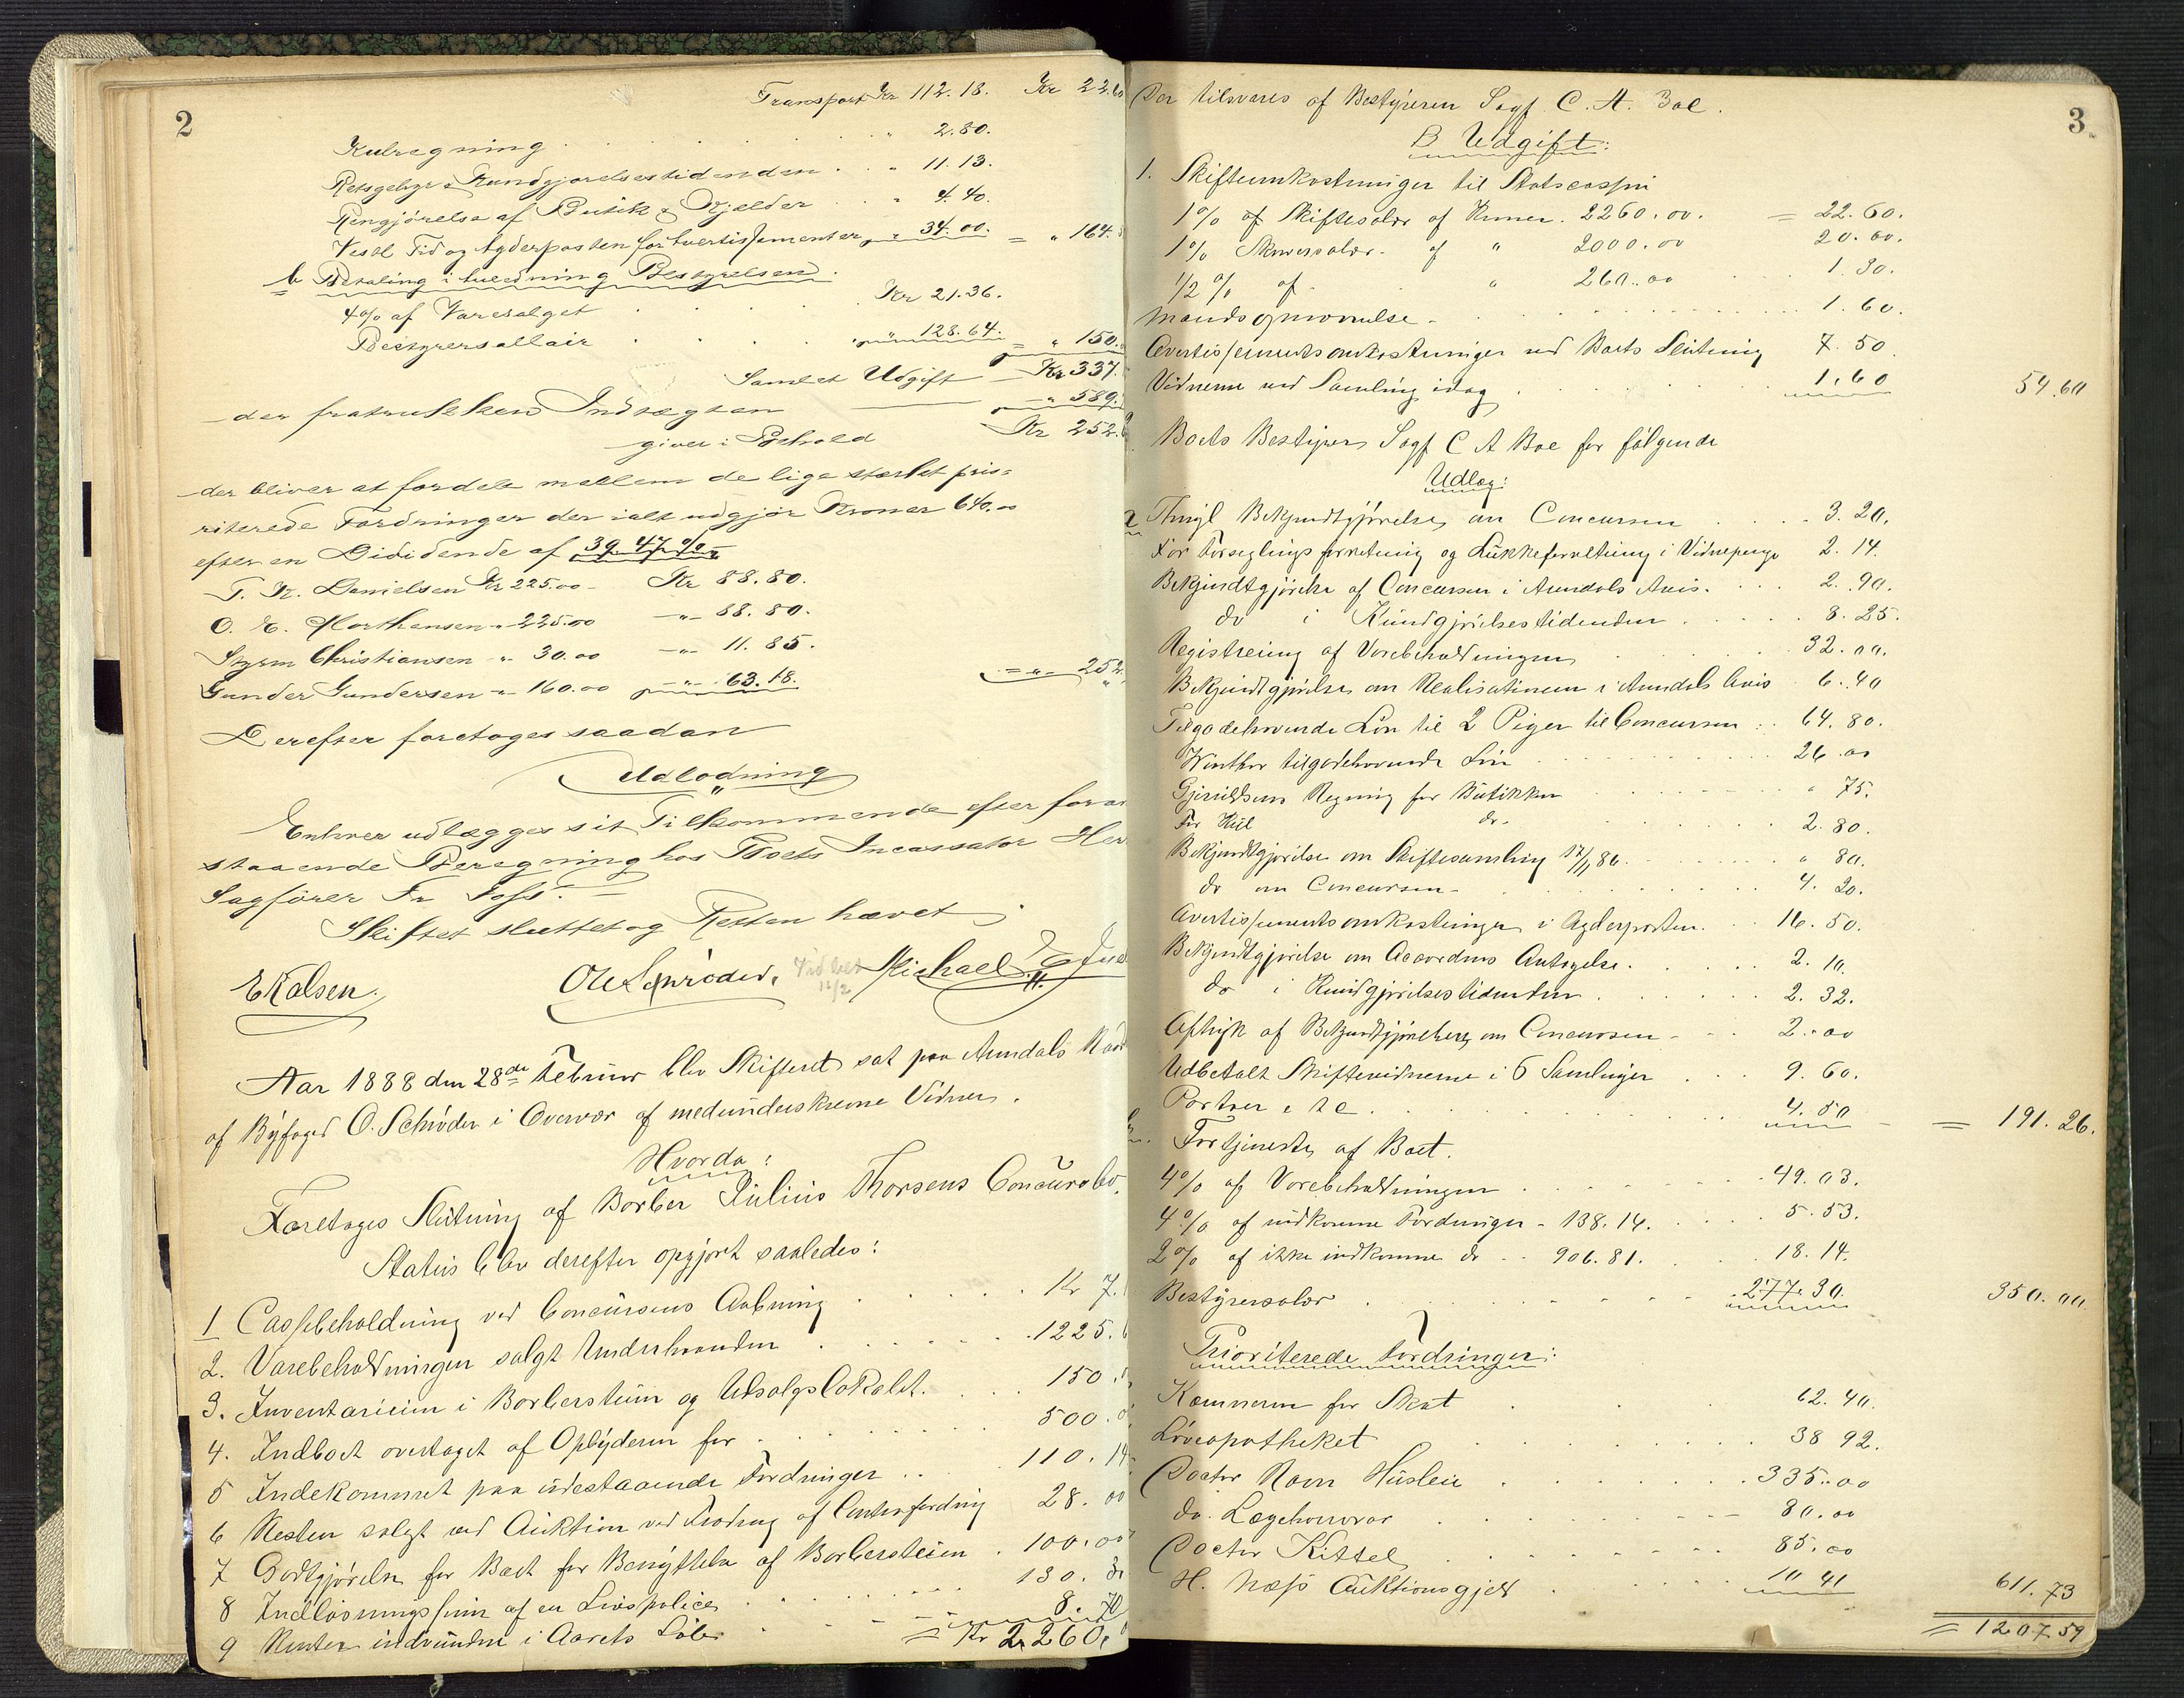 2
Transport Kr 112.13. Kr 22.60
Kulregning " 2.80.
Retsgebyr & Kundgjørelsestidenden " 11.13.
Rengjørelse af Butik & Kjelder " 4.40.
Vestl Tid og Agderposten for Avertissementer " 34.00. = " 164.
b Betaling i Anledning Bestyrelsen.
4% af Varesalget Kr 21.36.
Bestyrersallair " 128.64. = " 150.
Samlet Udgift Kr 337.
der fratrukken Indtægten " 589.
giver i Behold Kr 252.
der bliver at fordele mellem de lige stærkt pri=
riterede Fordringer der ialt udgjør Kroner 640.00
efter en Dividende af 39.47 %
T. Kr. Danielsen Kr 225.00 - Kr 88.80.
O. E. Morthensen " 225.00 - " - 88.80.
Styrm Christiansen " 30.00 - " - 11.85.
Gunder Gundersen " 160.00 - " - 63.18. = " 252.
Derefter foretoges saadan
Udlodning
Enhver udlægges sit Tilkommende efter foran
staaende Beregning hos Boets Incassator Her
Sagfører Fr Foss.
Skiftet sluttet og Retten hævet
EKalsen. Ole Schrøder. Michael
Aar 1888 den 28de Februar blev Skifteret sat paa Arendals Raad
af Byfoged O. Schrøder i Overvær af medunderskrevne Vidner.
Hvorda:
Foretoges Slutning af Barber Julius Thorsens Concursbo.
Status blev derefter opgjort saaledes:
1 Cassebeholdning ved Concursens Aabning Kr 7.
2. Varebeholdningen solgt Underhaanden 1225.
3. Inventariem i Barberstuen og Udsalgslokalet. 150.
4. Indboet overtaget af Opbyderen for 500.
5 Indekommet paa udestaaende Fordringer 110.14
6 Resten solgt ved Auktion ved Fradrag af Contrafordring 28.00
7 Godtgjørelse for Boet for Benyttelse af Barberstuen 100.00
8 Indløsningssum af en Livspolice 130.
9 Renter indvundne i Aarets Løb 8.70
= Kr 2260.
3.
Der tilsvares af Bestyreren Sagf. C. A. Boe.
B Udgift:
1. Skifteomkostninger til Statscassen
1% af Skiftesalær af Kroner 2260.00. = 22.60.
1% Skriversalær af " 2000.00 20.00.
1/2 % af " 260.00 1.30.
Mandsopnævnelse 1.60.
Avertissementsomkostninger ved Boets Slutning 7.50
Vidnerne ved Samling idag 1.60 54.60
Boets Bestyrer Sagf C A Boe for følgende
Udlæg:
2 Thingl Bekjendtgjørelse om Concursen 3.20.
For Forseglingsforretning og Lukkeforvaltning i Vidnepenge 2.14.
Bekjendtgjørelse af Concursen i Arendals Avis. 2.90.
do i Kundgjørelsestidenden 8.25.
Registrering af Varebeholdningen 32.00.
Bekjendtgjørelse om Realisationen i Arendals Avis 6.40
Tilgodehavende Løn til 2 Piger til Concursen 64.80.
Winther tilgodehavende Løn 26.00
Regning for Butikken " 75.
For Kul do 2.80.
Bekjendtgjørelse om Skiftesamling 17/1 86. " 80.
do om Concursen 4.20.
Avertissementsomkostninger i Agderposten. 16.50.
Bekjendtgjørelse om Accordens Antagelse. 2.10.
do i Kundgjørelsestidenden 2.32.
Aftryk af Bekjendtgjørelsen om Concursen 2.00
Udbetalt Skiftevidnerne i 6 Samlinger 9.60.
Portoer etc. 4.50 = 191.26.
Fortjeneste af Boet.
4% af Varebeholdningen 49.03.
4% af indkomne Fordringer - 138.14. 5.53.
2% af ikke indkomne do - 906.81. 18.14.
Bestyrersalær 277.30. 350.00.
Prioriterede Fordringer:
Kæmneren for Skat 62.40.
Løveapotheket 38 92.
Doctor Ravn Husleie 335.00
do. Lægehonorar 80.00
Doctor Kittel 85.00
H. Næss Auktionsgjeld 10 41 611.73
= 1207.59